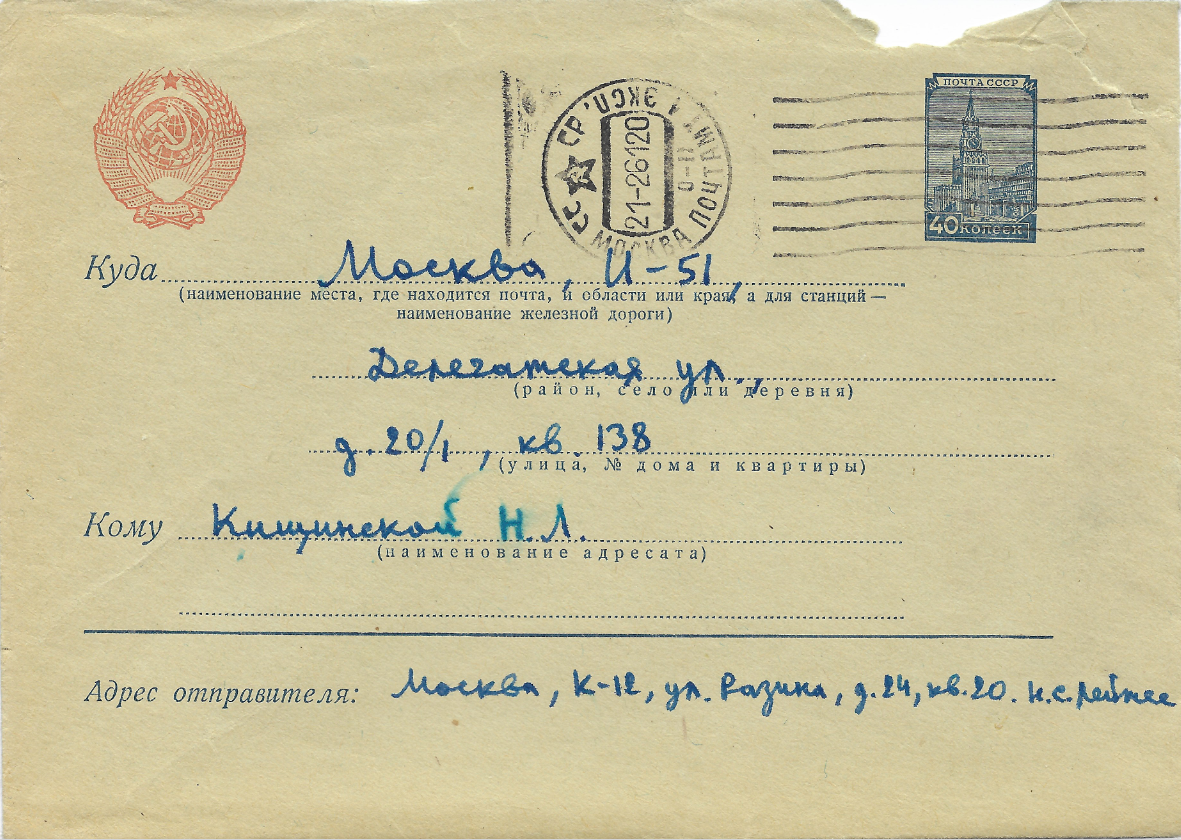 СССР МОСКВА ПОЧТАМТ
21-261220
ПОЧТА СССР
40 копеек
Куда Москва, И-51,
(наименование места, где находится почта, и области или края, а для станций —
наименование железной дороги)
Делегатская ул.,
(район, село или деревня)
д. 20/1, кв. 138
(улица, № дома и квартиры)
Кому Кищинской Н.Л.
(наименование адресата)
Адрес отправителя: Москва, К-12, ул. Разина, д. 24, кв. 20. Н.С.